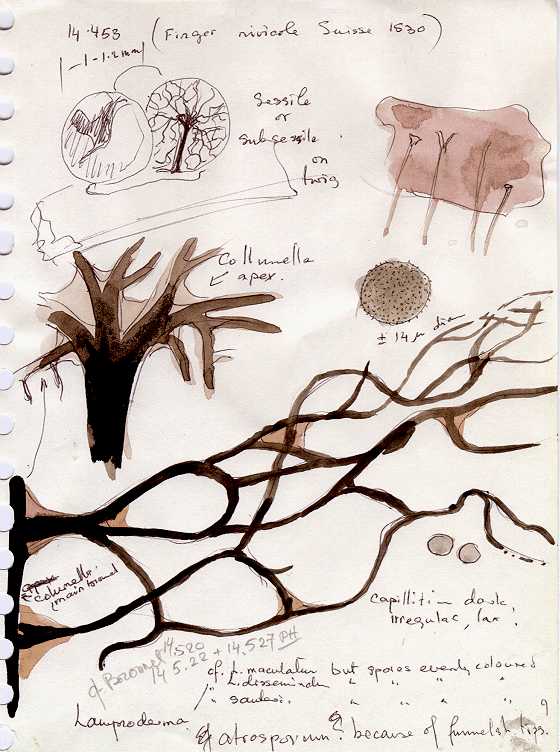 14.453 (Finger nivicole Suisse 1530)
1-1.2 mm
Sessile
or
subsessile
on
twig
Collumella
apex.
± 14 µ dia
columella
main trunnel
Capillitium dark,
irregular, lax.
cf. Bozonnet 14.520
14.5.22 + 14.527 PH
cf. L. maculatum but spores evenly coloured
" L. dissemindu " " " "
" sauteri. " " " "
Lamproderma
cf atrosporum? because of funnelsh. tips.